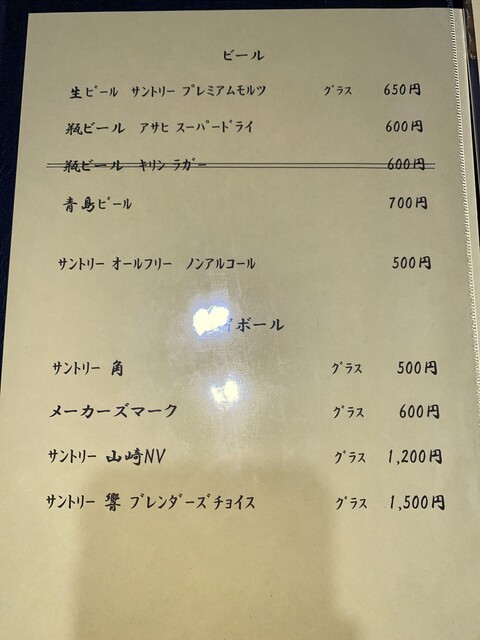 ビール
生ビール サントリー プレミアムモルツ グラス 650円
瓶ビール アサヒ スーパードライ 600円
瓶ビール キリン ラガー 600円
青島ビール 700円
サントリー オールフリー ノンアルコール 500円
ボール
サントリー 角 グラス 500円
メーカーズマーク グラス 600円
サントリー 山崎NV グラス 1,200円
サントリー 響 ブレンダーズチョイス グラス 1,500円